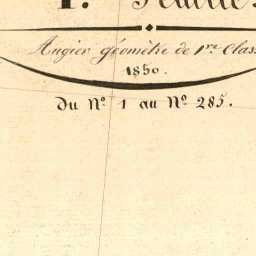 1. Feuille.
Augier géomètre de 1re Clas
1850.
Du No. 1 au No. 285.